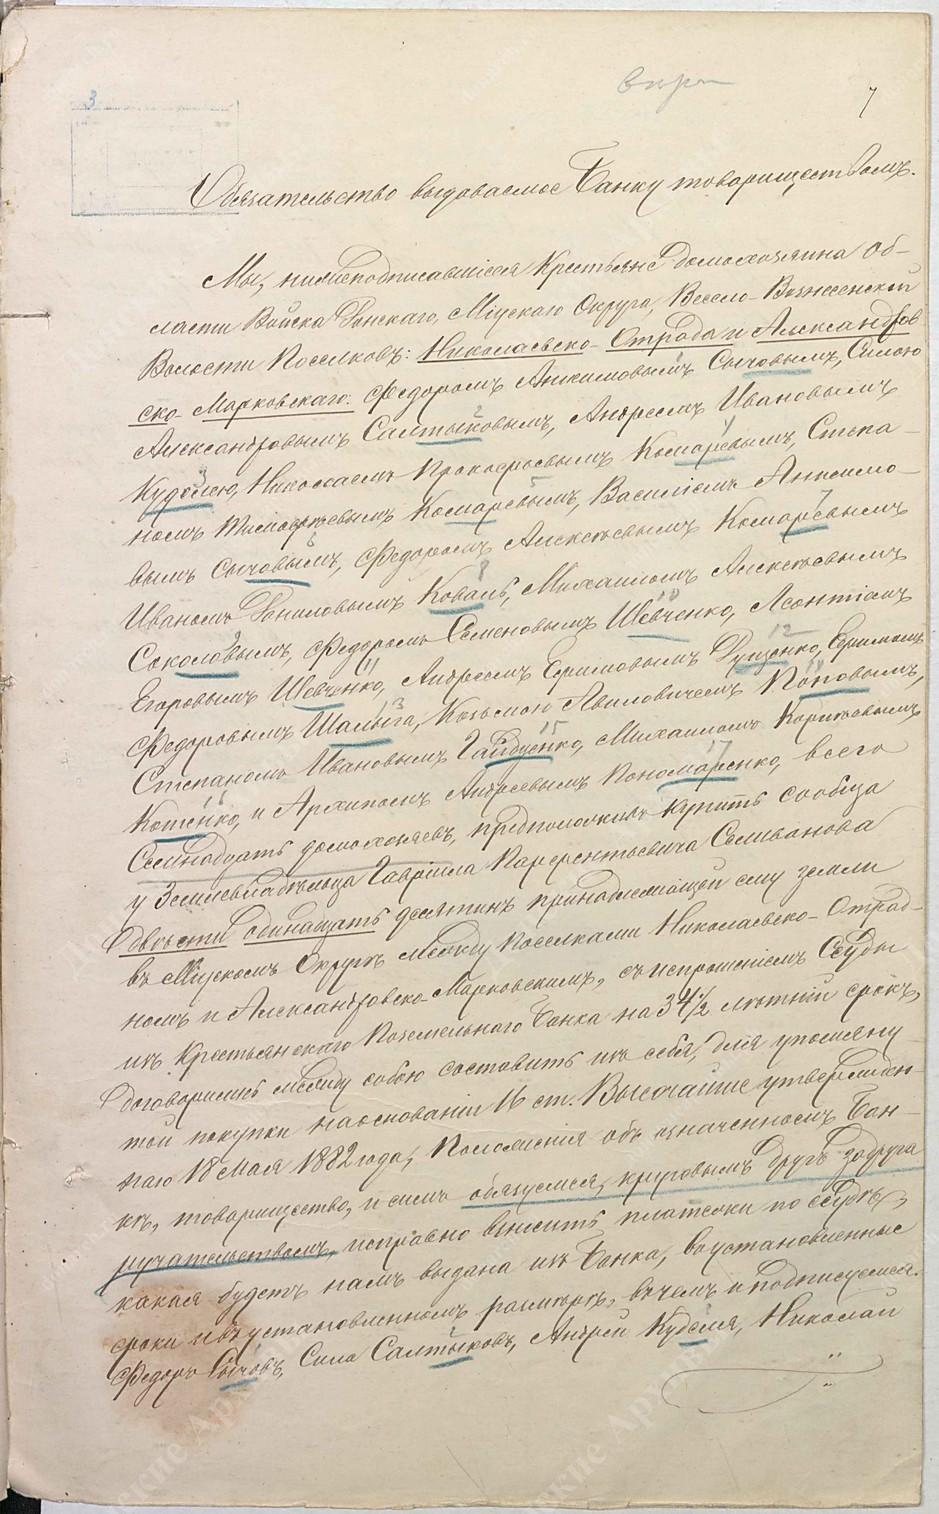 3
7
Обязательство выдаваемое Банку товариществомъ.
Мы, нижеподписавшіеся Крестьяне домохозяина Об-
ласти Войска Донскаго, Міускаго Округа, Весело-Вознесенской
Волости Поселковъ: Николаевско-Отрада и Александров
ско-Марковскаго: Федоромъ Анисимовымъ Сычовымъ, Силою
Александровымъ Салтыковымъ, Андреемъ Ивановымъ
Куделею, Николаемъ Прокофьевымъ Комаревымъ, Степа-
номъ Тимофеевымъ Комаревымъ, Василіемъ Анисимо-
вымъ Сычовымъ, Федоромъ Алексеевымъ Комаревымъ
Иваномъ Даниловымъ Коваль, Михаиломъ Алексеевымъ
Соколовымъ, Федоромъ Семеновымъ Шевченко, Леонтіемъ
Егоровымъ Шевченко, Андреемъ Ефимовымъ Ефимомъ
Федоровымъ Козьмою Поповымъ,
Степаномъ Ивановымъ Гайдуенко, Михаиломъ
Котенко, и Архипомъ Андреевымъ Пономаренко, всего
Семнадцать домохозяевъ, предположивъ купить сообща
у Землевладельца Гавріила Парфентьевича Селиванова
Двести одинадцать десятинъ принадлежащей ему земли
въ Міускомъ Округе между поселками Николаевско-Отрад-
номъ и Александровско-Марковскимъ, съ испрошеніемъ Ссуды
изъ Крестьянскаго Поземельнаго Банка на 34½ летній срокъ,
договорились между собою составить изъ себя, для упомяну
той покупки на основаніи 16 ст. Высочайше утвержден-
наго 18 Мая 1882 года, Положенія объ означенномъ Бан-
ке, товарищество, и симъ обязуемся, круговымъ другъ задруга
ручательствомъ, исправно вносить платежи по ссуде,
какая будетъ намъ выдана изъ Банка, въ установленные
сроки и въ установленномъ размере, въ чемъ и подписуемся.
Федоръ Сычовъ, Сила Салтыковъ, Андрей Куделя, Николай